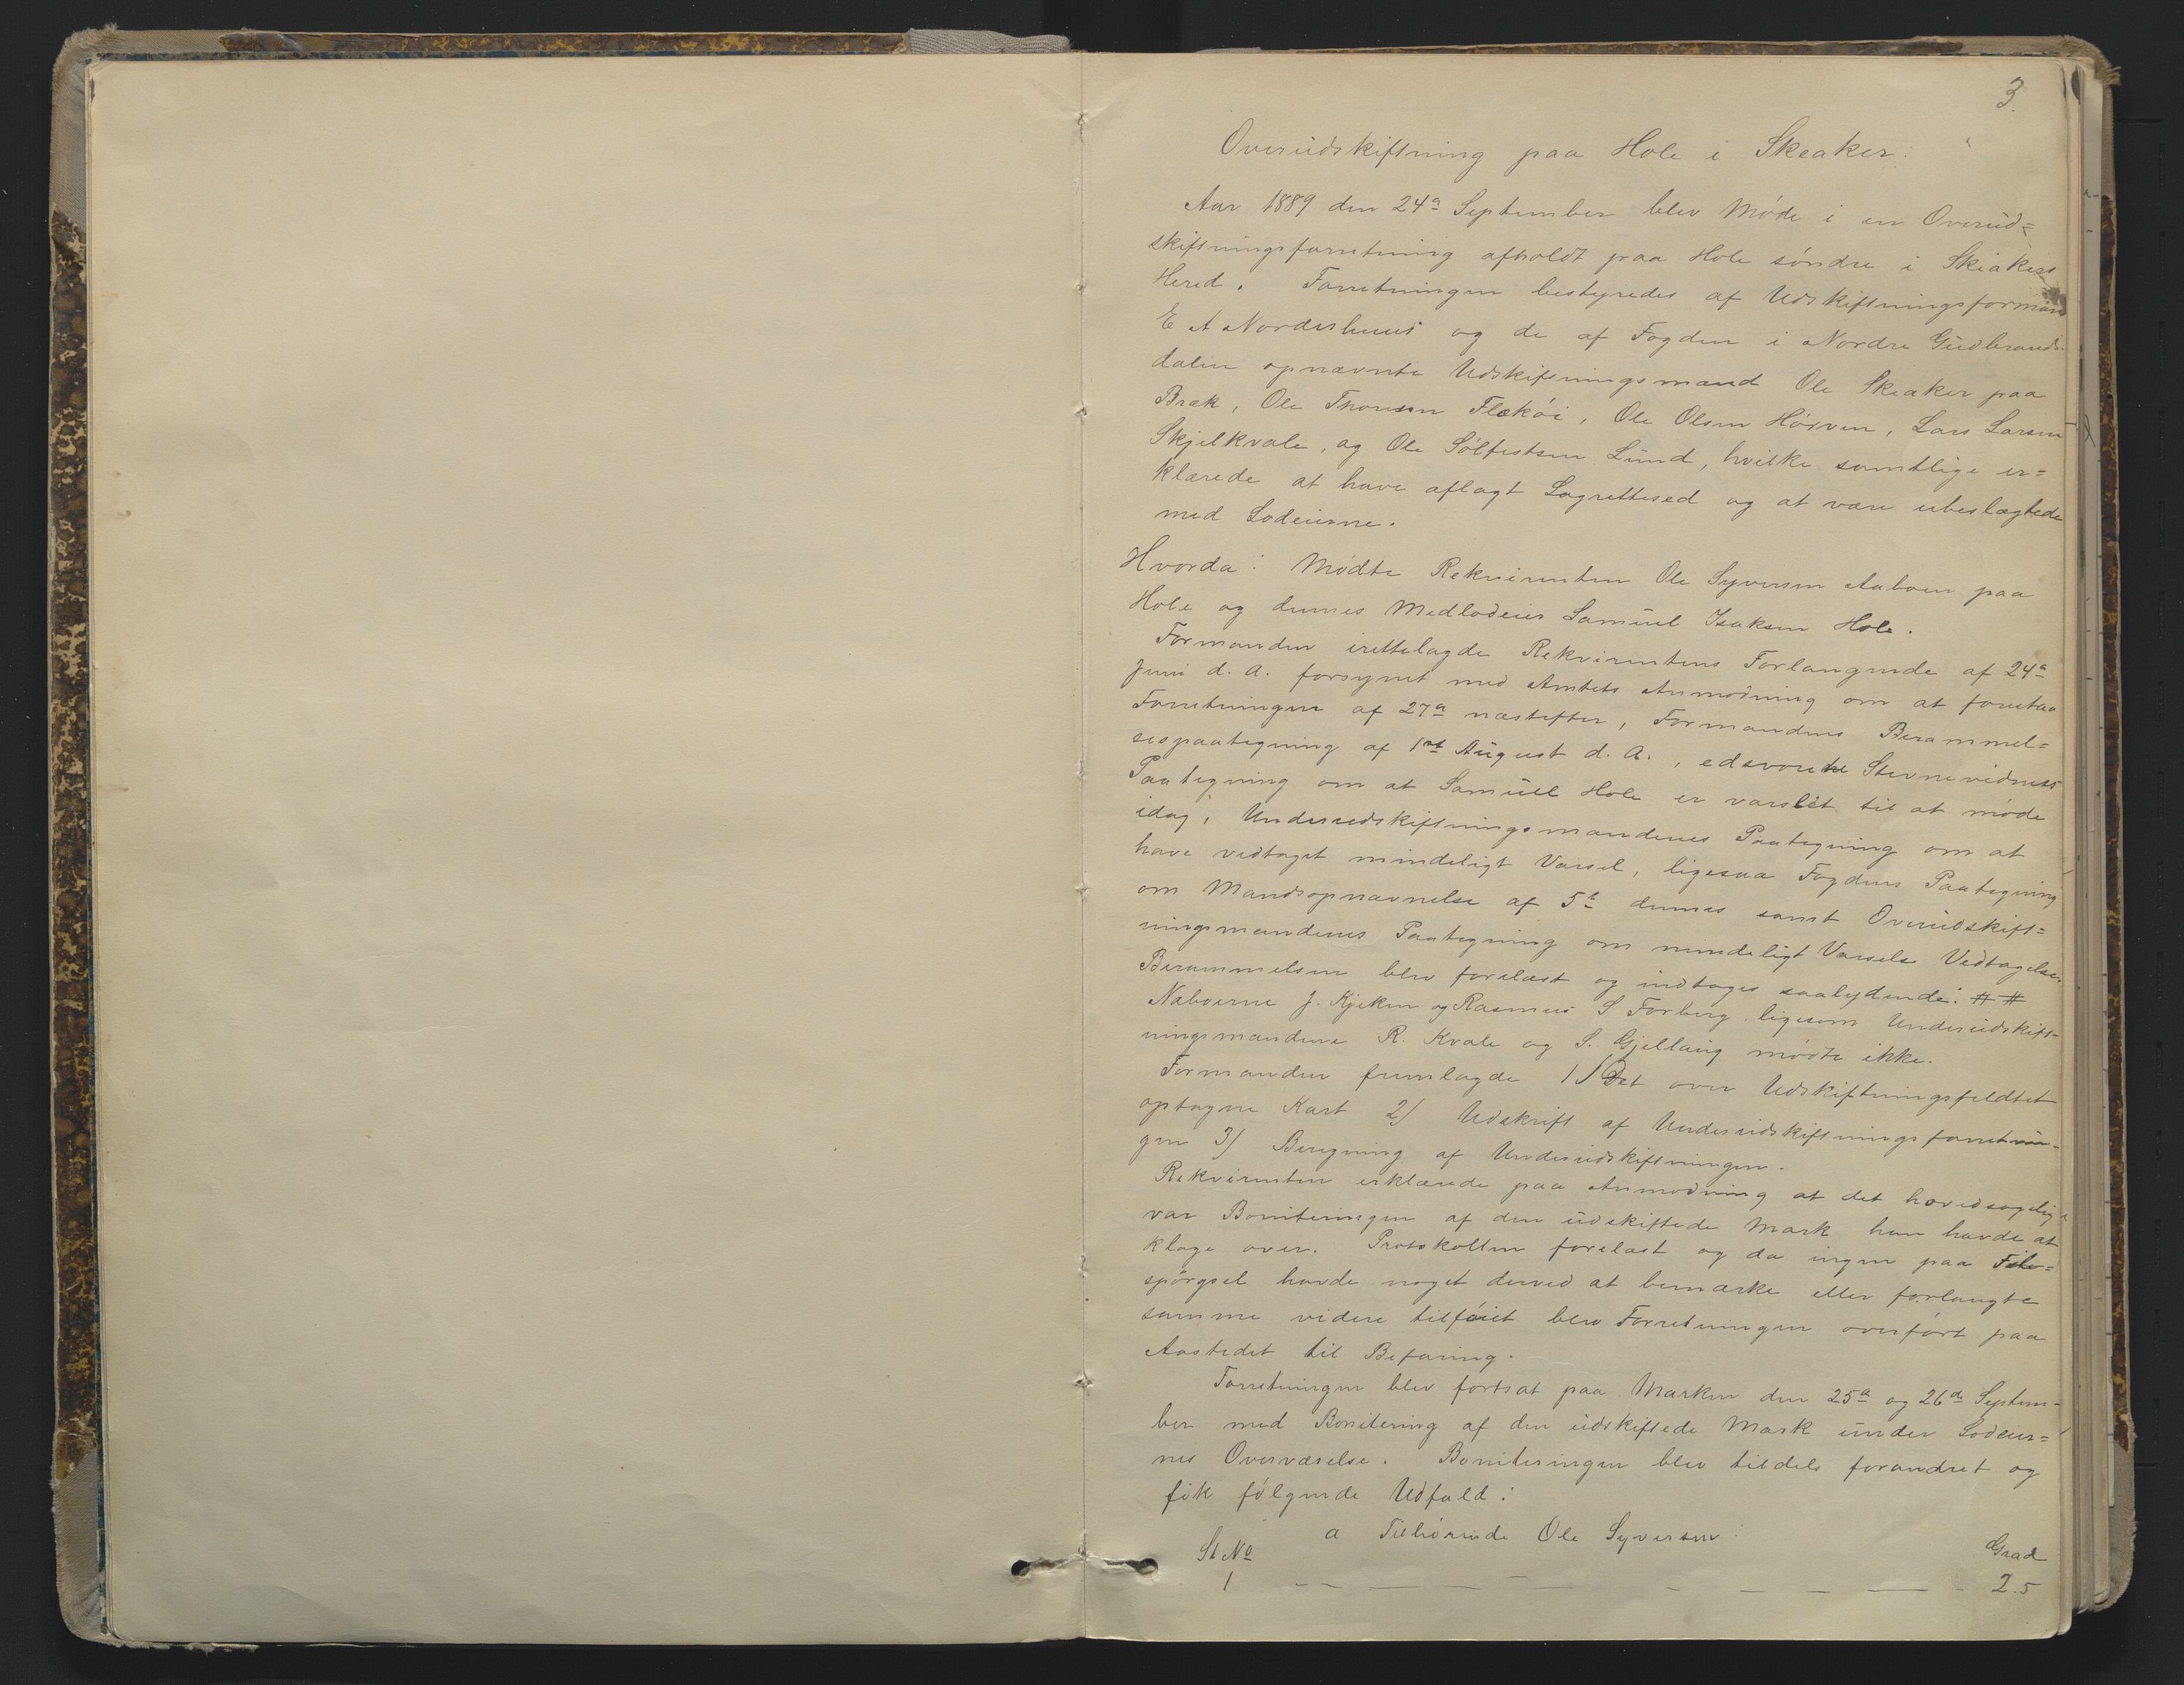 3.
Overudskiftning paa Hole i Skeaker.
Aar 1889 den 24de September blev Møde i en Overud=
skiftningsforretning afholdt paa Hole søndre i Skiakers
Hered. Forretningen bestyredes af Udskiftningsformand
E A Norderhuus og de af Fogden i Nordre Gudbrands-
dalen opnævnte Udskiftningsmænd Ole Skeaker paa
Bræk, Ole Thomsen Flækøi, Ole Olsen Hørven, Lars Larsen
Skjelkvale, og Ole Sølfestsen Lund, hvilke samtlige er=
klærede at have aflagt Lagrettesed og at være ubeslægtede
med Lodeierne.
Hvorda: Mødte Rekvirenten Ole Syversen Aaboen paa
Hole og dennes Medlodeier Samuel Isaksen Hole.
Formanden irettelagde Rekvirentens Forlangende af 24de
Juni d. A. forsynet med Amtets Anmodning om at foretaa
Forretningen af 27de næstefter, Formandens Berammel=
sespaategning af 1ste August d. A., edsvorene Stevnevidners
Paategning om at Samuel Hole er varslet til at møde
idag, Underudskiftningsmændenes Paategning om at
have vedtaget mindeligt Varsel, ligesaa Fogdens Paategning
om Mandsopnævnelse af 5te dennes samt Overudskift=
ningsmændenes Paategning om mindeligt Varsels Vedtagelse.
Berammelsen blev forelæst og indtages saalydende: # #
Naboerne J. Kjeken og Rasmus S Forberg ligesom Underudskift-
ningsmændene R. Kvale og S. Gjellaug mødte ikke.
Formanden fremlagde 1) Det over Udskiftningsfeldtet
optagne Kart 2) Udskrift af Underudskiftningsforretnin-
gen 3) Beregning af Underudskiftningen.
Rekvirenten erklærede paa Anmodning at det hovedsagelig
var Boniteringen af den udskiftede Mark han havde at
klage over. Protokollen forelæst og da ingen paa
spørgsel havde noget derved at bemærke eller forlangte
samme videre tilføiet blev Forretningen overført paa
Aastedet til Befaring.
Forretningen blev fortsat paa Marken den 25de og 26de Septem-
ber med Bonitering af den udskiftede Mark under Lodeier=
nes Overværelse. Boniteringen blev tildels forandret og
fik følgende Udfald:
a Tilhørende Ole Syversen:
St No Grad
1 — — — — — — — — — 2.5